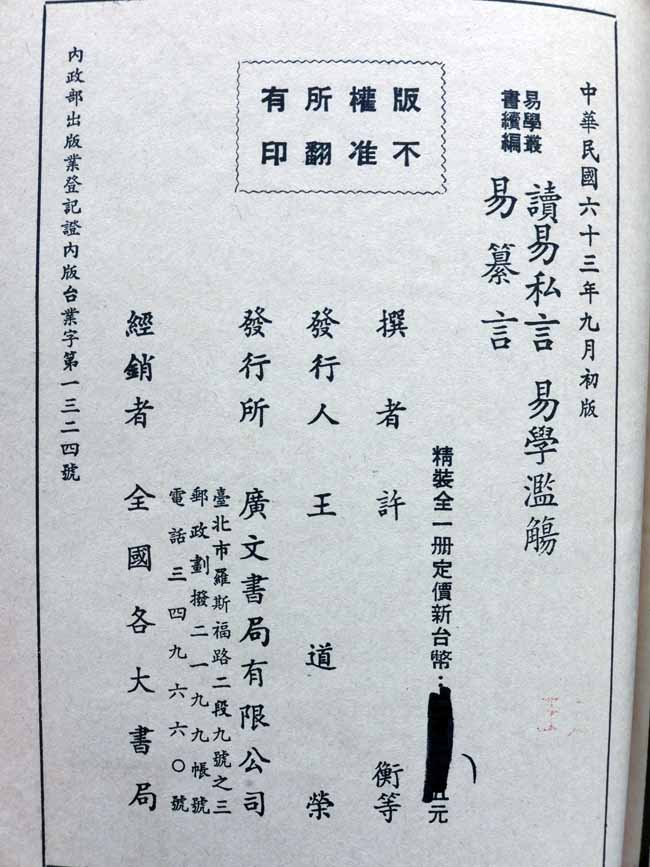 中華民國六十三年九月初版
易學叢書續編
讀易私言 易學濫觴
易纂言
版權所有
不准翻印
精裝全一册定價新台幣：元
撰者許衡等
發行人王道榮
發行所廣文書局有限公司
臺北市羅斯福路二段九號之三
郵政劃撥二一九九帳號
電話三四九六六〇號
經銷者全國各大書局
內政部出版業登記證內版台業字第一三二四號